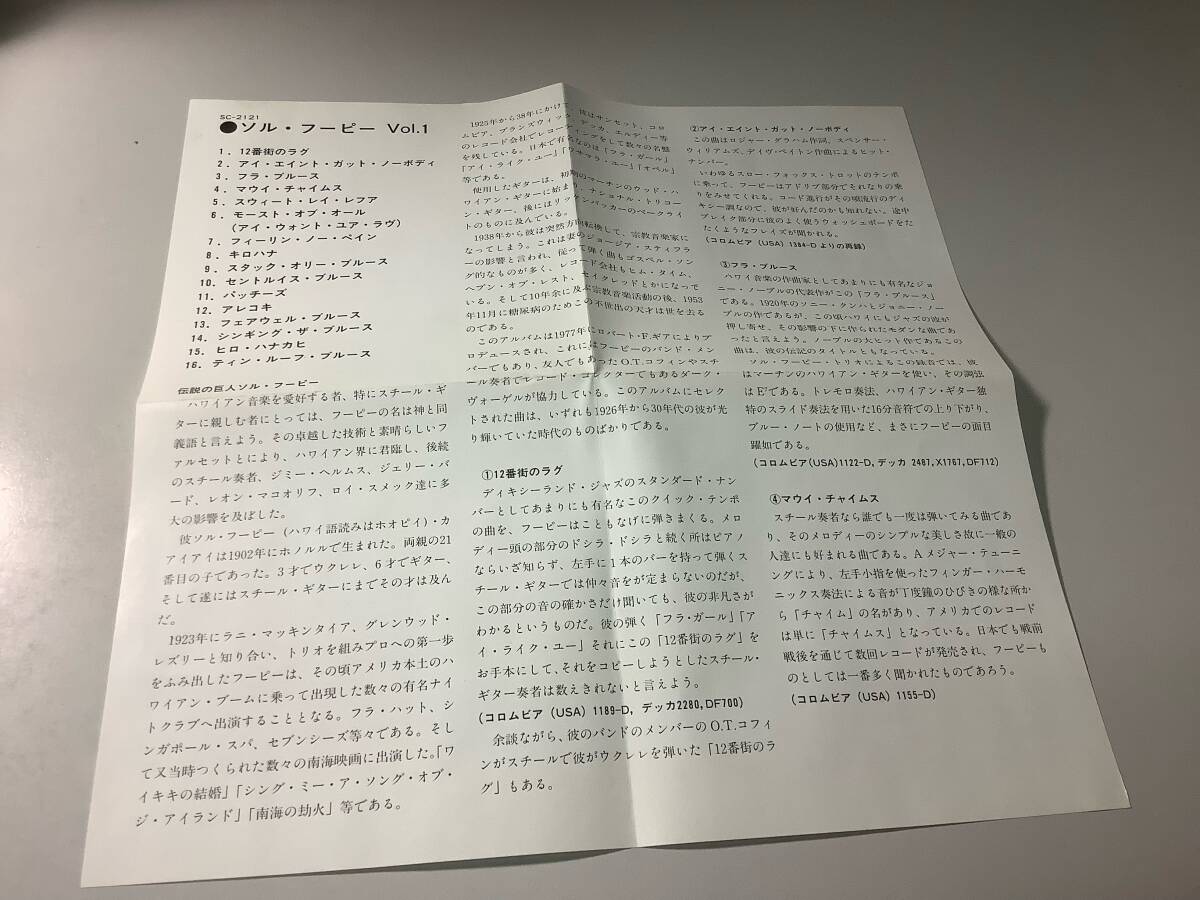 SC-2121
●ソル・フーピー Vol.1
1. 12番街のラグ
2. アイ・エイント・ガット・ノーボディ
3. フラ・ブルース
4. マウイ・チャイムス
5. スウィート・レイ・レフア
6. モースト・オブ・オール
(アイ・ウォント・ユア・ラヴ)
7. フィーリン・ノー・ペイン
8. キロハナ
9. スタック・オリー・ブルース
10. セントルイス・ブルース
11. パッチーズ
12. アレコキ
13. フェアウェル・ブルース
14. シンギング・ザ・ブルース
15. ヒロ・ハナカヒ
16. ティン・ルーフ・ブルース
伝説の巨人ソル・フーピー
ハワイアン音楽を愛好する者、特にスチール・ギ
ターに親しむ者にとっては、フーピーの名は神と同
義語と言えよう。その卓越した技術と素晴らしいフ
ァルセットとにより、ハワイアン界に君臨し、後続
のスチール奏者、ジミー・ヘルムス、ジェリー・バ
ード、レオン・マコオリフ、ロイ・スメック達に多
大の影響を及ぼした。
彼ソル・フーピー(ハワイ語読みはホオピイ)・カ
アイアイは1902年にホノルルで生まれた。両親の21
番目の子であった。3才でウクレレ、6才でギター、
そして遂にはスチール・ギターにまでその才は及ん
だ。
1923年にラニ・マッキンタイア、グレンウッド・
レズリーと知り合い、トリオを組みプロへの第一歩
をふみ出したフーピーは、その頃アメリカ本土のハ
ワイアン・ブームに乗って出現した数々の有名ナイ
トクラブへ出演することとなる。フラ・ハット、シ
ンガポール・スパ、セブンシーズ等々である。そし
て又当時つくられた数々の南海映画に出演した。「ワ
イキキの結婚」「シング・ミー・ア・ソング・オブ・
ジ・アイランド」「南海の劫火」等である。
1925年から38年にかけて、彼はサンセット、コロ
ムビア、ブランズウィック、デッカ、エルディー等
のレコード会社でレコーディングをして数々の名盤
を残している。日本で有名なのは「フラ・ガール」
「アイ・ライク・ユー」「ワサマラ・ユー」「オベル」
等である。
使用したギターは、初期のマーチンのウッド・ハ
ワイアン・ギターに始まり、ナショナル・トリコー
ン・ギター、後にはリッケンバッカーのベークライ
トのものに及んでいる。
1938年から彼は突然方向転換して、宗教音楽家に
なってしまう。これは妻のジョージア・スティフラ
ーの影響と言われ、従って弾く曲もゴスペル・ソン
グ的なものが多く、レコード会社もヒム・タイム、
ヘブン・オブ・レスト、セイクレッドとかになって
いる。そして10年余に及ぶ宗教音楽活動の後、1953
年11月に糖尿病のためこの不世出の天才は世を去る
のである。
このアルバムは1977年にロバート・F.ギアによりプ
ロデュースされ、これにはフーピーのバンド・メン
バーでもあり、友人でもあったO.T.コフィンやスチ
ール奏者でレコード・コレクターでもあるダーク・
ヴォーゲルが協力している。このアルバムにセレク
トされた曲は、いずれも1926年から30年代の彼が光
り輝いていた時代のものばかりである。
①12番街のラグ
ディキシーランド・ジャズのスタンダード・ナン
バーとしてあまりにも有名なこのクイック・テンポ
の曲を、フーピーはこともなげに弾きまくる。メロ
ディー頭の部分のドシラ・ドシラと続く所はピアノ
ならいざ知らず、左手に1本のバーを持って弾くス
チール・ギターでは仲々音をが定まらないのだが、
この部分の音の確かさだけ聞いても、彼の非凡さが
わかるというものだ。彼の弾く「フラ・ガール」「ア
イ・ライク・ユー」それにこの「12番街のラグ」を
お手本にして、それをコピーしようとしたスチール・
ギター奏者は数えきれないと言えよう。
(コロムビア (USA) 1189-D, デッカ2280, DF700)
余談ながら、彼のバンドのメンバーのO.T.コフィ
ンがスチールで彼がウクレレを弾いた「12番街のラ
グ」もある。
②アイ・エイント・ガット・ノーボディ
この曲はロジャー・グラハム作詞、スペンサー・
ウィリアムズ、デイヴ・ペイトン作曲によるヒット・
ナンバー。
いわゆるスロー・フォックス・トロットのテンポ
に乗って、フーピーはアドリブ部分でそれなりの乗
りをみせてくれる。コード進行がその頃流行のディ
キシー調なので、彼が好んだのかも知れない。途中
ブレイク部分に彼のよく使うウォッシュボードをた
たくようなフレイズが聞かれる。
(コロムビア (USA) 1384-D よりの再録)
③フラ・ブルース
ハワイ音楽の作曲家としてあまりにも有名なジョ
ニー・ノーブルの代表作がこの「フラ・ブルース」
である。1920年のソニー・クンハとジョニー・ノー
ブルの作であるが、この頃ハワイにもジャズの波が
押し寄せ、その影響の下に作られたモダンな曲であ
ったと言えよう。ノーブルの大ヒット作であるこの
曲は、彼の伝記のタイトルともなっている。
ソル・フーピー・トリオによるこの録音では、彼
はマーチンのハワイアン・ギターを使い、その調弦
はE⁷である。トレモロ奏法、ハワイアン・ギター独
特のスライド奏法を用いた16分音符での上り下がり、
ブルー・ノートの使用など、まさにフーピーの面目
躍如である。
(コロムビア(USA)1122-D, デッカ 2487, X1767, DF712)
④マウイ・チャイムス
スチール奏者なら誰でも一度は弾いてみる曲であ
り、そのメロディーのシンプルな美しさ故に一般の
人達にも好まれる曲である。Aメジャー・テューニ
ングにより、左手小指を使ったフィンガー・ハーモ
ニックス奏法による音が丁度鐘のひびきの様な所か
ら「チャイム」の名があり、アメリカでのレコード
は単に「チャイムス」となっている。日本でも戦前
戦後を通じて数回レコードが発売され、フーピーも
のとしては一番多く聞かれたものであろう。
(コロムビア (USA) 1155-D)